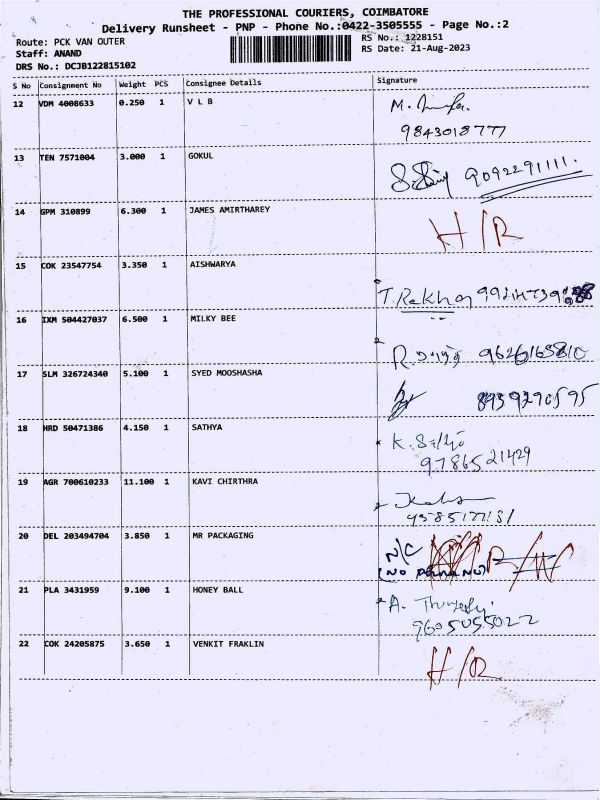 THE PROFESSIONAL COURIERS, COIMBATORE
Delivery Runsheet - PNP - Phone No.:0422-3505555 - Page No.:2
Route: PCK VAN OUTER
RS No.: 1228151
Staff: ANAND
RS Date: 21-Aug-2023
DRS No.: DCJB122815102
S No Consignment No Weight PCS Consignee Details Signature
12 VDM 4008633 0.250 1 V L B
9843018777
13 TEN 7571004 3.000 1 GOKUL
9092291111.
14 GPM 310899 6.300 1 JAMES AMIRTHAREY
H/R
15 COK 23547754 3.350 1 AISHWARYA
T. Rekha
16 IXM 504427037 6.500 1 MILKY BEE
R.
17 SLM 326724340 5.100 1 SYED MOOSHASHA
8939290595
18 HRD 50471386 4.150 1 SATHYA
K.
9786521429
19 AGR 700610233 11.100 1 KAVI CHIRTHRA
20 DEL 203494704 3.850 1 MR PACKAGING
N/C
21 PLA 3431959 9.100 1 HONEY BALL
A.
9605055022
22 COK 24205875 3.650 1 VENKIT FRAKLIN
H/R